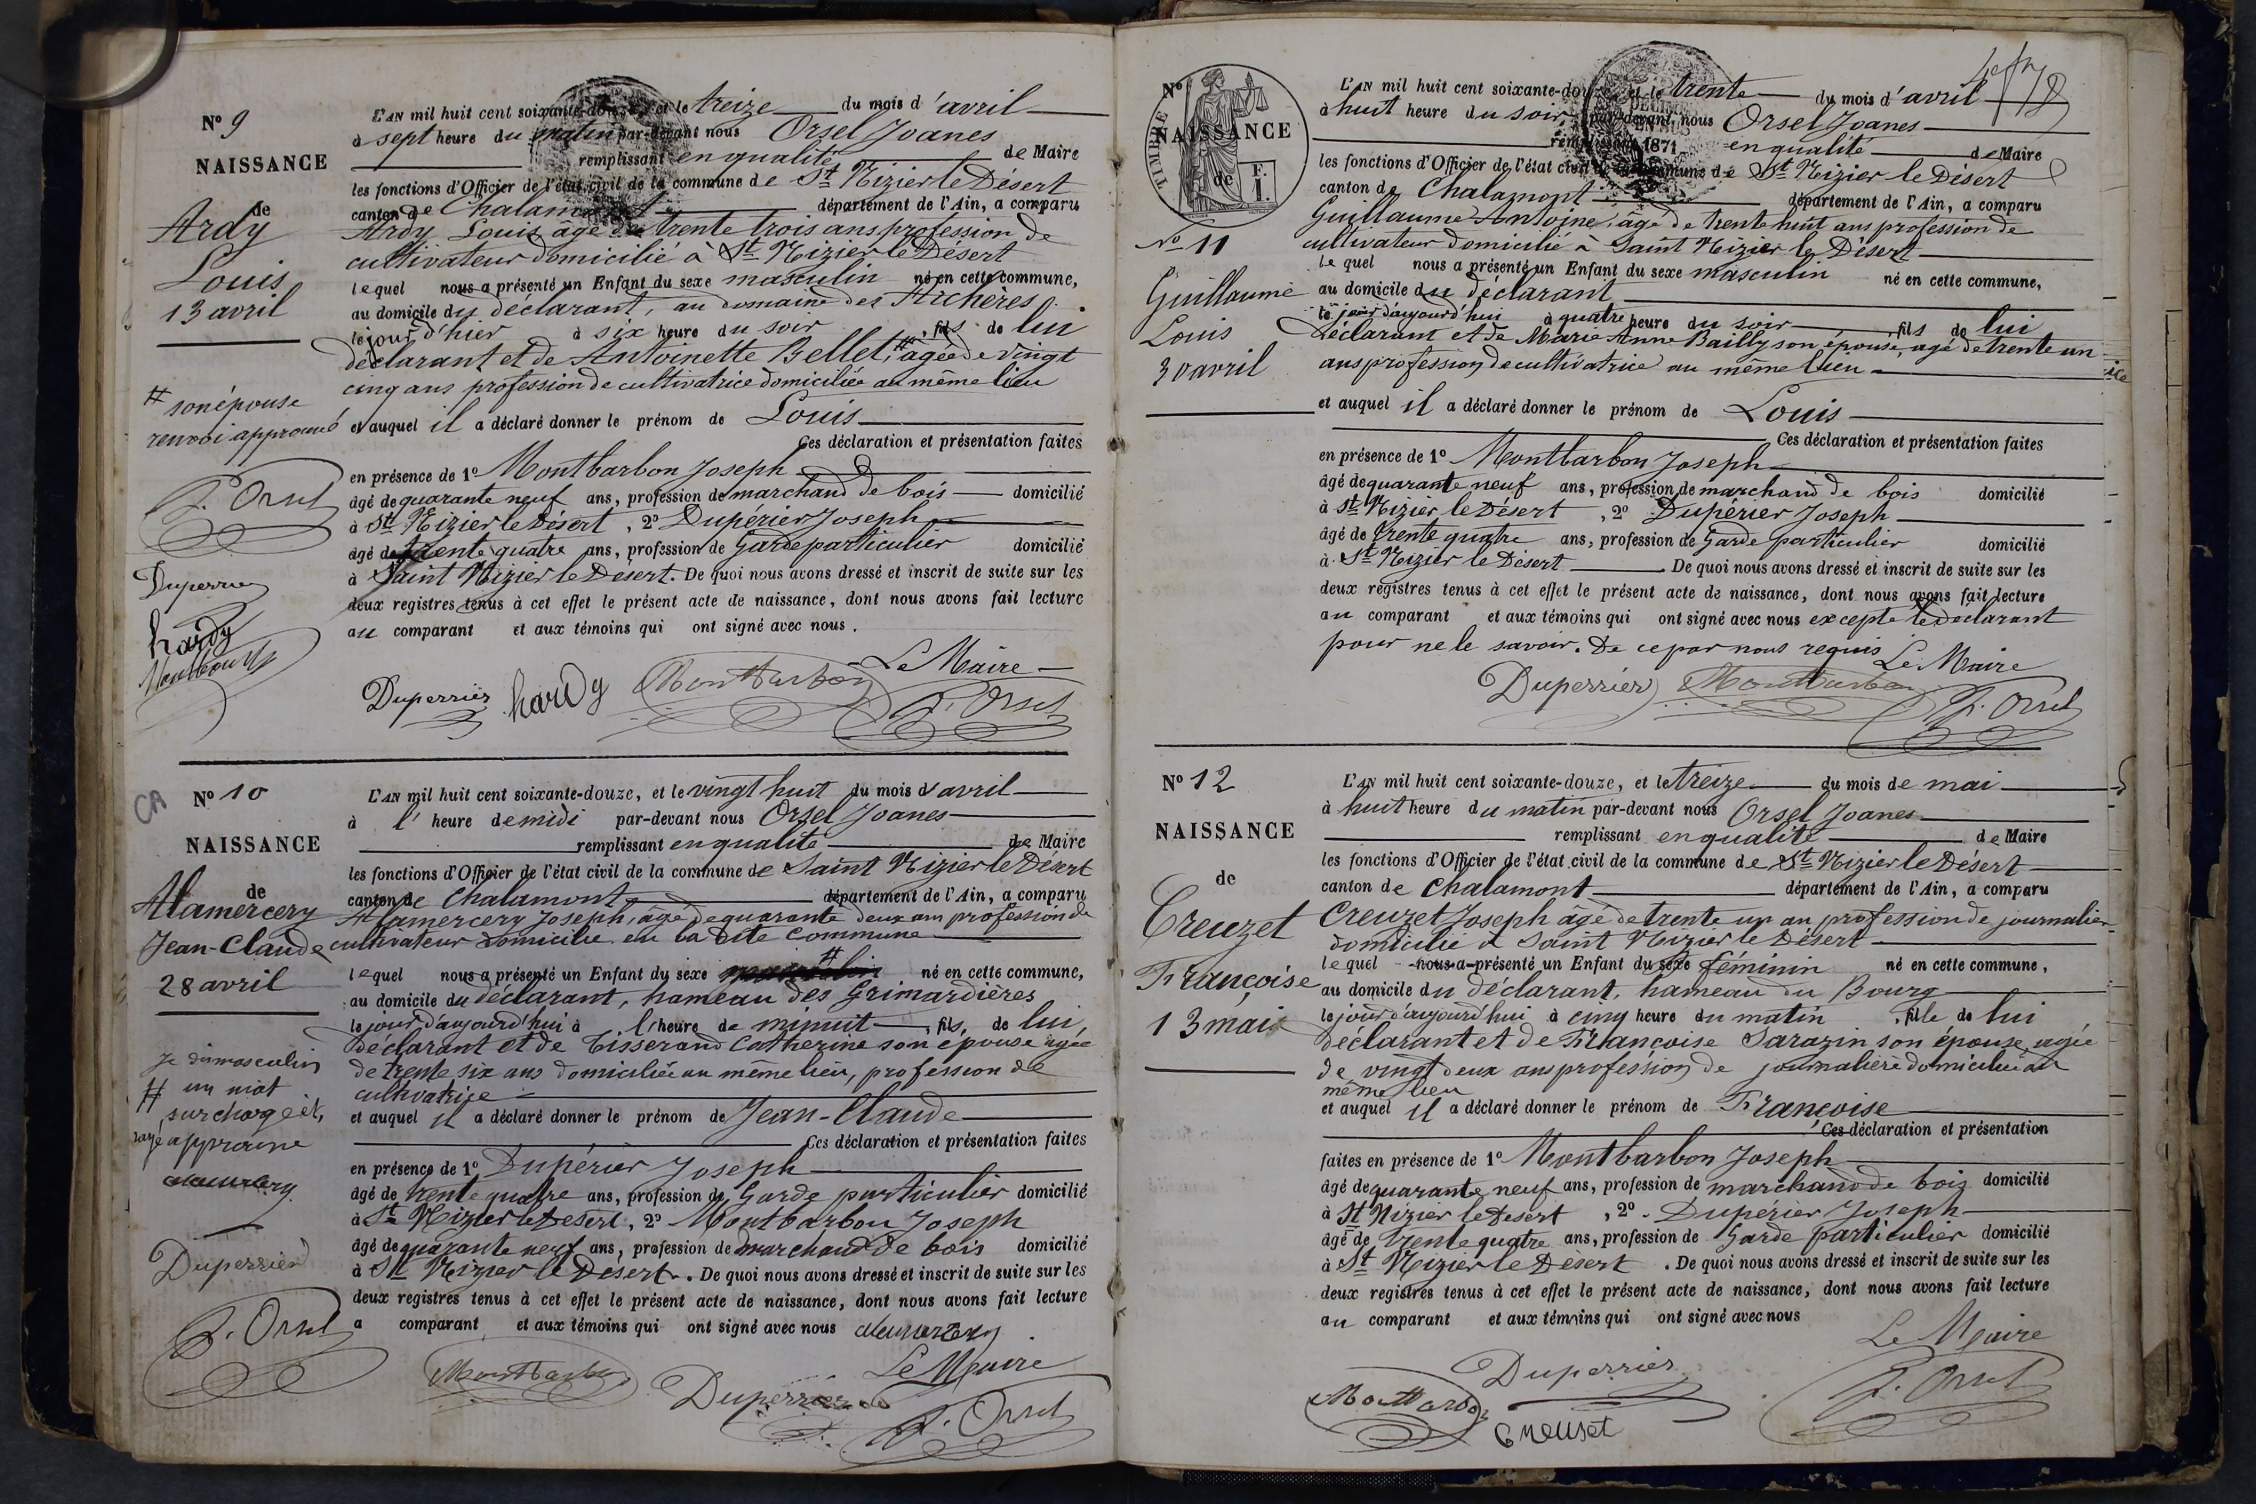 N° 9
NAISSANCE
de
Ardy
Louis
13 avril
# son épouse
renvoi approuvé
J. Orsel
Duperrier
hardy
Montbarbon
L'AN mil huit cent soixante-douze, et le treize du mois d'avril
à sept heure du matin par-devant nous Orsel Joanes
remplissant en qualité de Maire
les fonctions d'Officier de l'état civil de la commune de St Nizier le Désert
canton de Chalamont département de l'Ain, a comparu
Ardy Louis agé de trente trois ans profession de
cultivateur domicilié à St Nizier le Désert
lequel nous a présenté un Enfant du sexe masculin né en cette commune,
au domicile du déclarant, au domaine des Fichères
le jour d'hier à six heure du soir, fils de lui
déclarant et de Antoinette Bellet, # agée de vingt
cinq ans profession de cultivatrice domiciliée au même lieu
et auquel il a déclaré donner le prénom de Louis
Ces déclaration et présentation faites
en présence de 1° Montbarbon Joseph
âgé de quarante neuf ans, profession de marchand de bois domicilié
à St Nizier le Désert, 2° Dupérier Joseph
âgé de trente quatre ans, profession de Garde particulier domicilié
à Saint Nizier le Désert. De quoi nous avons dressé et inscrit de suite sur les
deux registres tenus à cet effet le présent acte de naissance, dont nous avons fait lecture
au comparant et aux témoins qui ont signé avec nous.
Le Maire
Duperrier hardy Montbarbon J. Orsel
CA
N° 10
NAISSANCE
de
Alamercery
Jean-Claude
28 avril
Je dis masculin
# un mot
surchargé et
rayé approuvé
alamercery
Duperrier
J. Orsel
L'AN mil huit cent soixante-douze, et le vingt huit du mois d'avril
à l'heure de midi par-devant nous Orsel Joanes
remplissant en qualité de Maire
les fonctions d'Officier de l'état civil de la commune de Saint Nizier le Désert
canton de Chalamont département de l'Ain, a comparu
Alamercery Joseph, âgé de quarante deux ans profession de
cultivateur domicilié en la dite commune
lequel nous a présenté un Enfant du sexe masculin # né en cette commune,
au domicile du déclarant, hameau des Grimardières
le jour d'aujourd'hui à l'heure de minuit, fils, de lui,
déclarant et de Tisserand Catherine son épouse agée
de trente six ans domiciliée au même lieu, profession de
cultivatrice
et auquel il a déclaré donner le prénom de Jean-Claude
Ces déclaration et présentation faites
en présence de 1° Dupérier Joseph
âgé de trente quatre ans, profession de Garde particulier domicilié
à St Nizier le Désert, 2° Montbarbon Joseph
âgé de quarante neuf ans, profession de marchand de bois domicilié
à St Nizier le Désert. De quoi nous avons dressé et inscrit de suite sur les
deux registres tenus à cet effet le présent acte de naissance, dont nous avons fait lecture
a comparant et aux témoins qui ont signé avec nous alamercery
Le Maire
Montbarbon Duperrier J. Orsel
N°
NAISSANCE
de
TIMBRE
F.
1.
N° 11
Guillaume
Louis
30 avril
L'AN mil huit cent soixante-douze, et le trente du mois d'avril
à huit heure du soir, par-devant nous Orsel Joanes
remplissant 1871 en qualité de Maire
les fonctions d'Officier de l'état civil de la commune de St Nizier le Désert
canton de Chalamont département de l'Ain, a comparu
Guillaume Antoine, âgé de trente huit ans profession de
cultivateur domicilié à Saint Nizier le Désert
lequel nous a présenté un Enfant du sexe masculin né en cette commune,
au domicile du déclarant
le jour d'aujourd'hui à quatre heure du soir, fils de lui
déclarant et de Marie Anne Bailly son épouse, agé de trente un
ans profession de cultivatrice au même lieu
et auquel il a déclaré donner le prénom de Louis
Ces déclaration et présentation faites
en présence de 1° Montbarbon Joseph
âgé de quarante neuf ans, profession de marchand de bois domicilié
à St Nizier le Désert, 2° Dupérier Joseph
âgé de trente quatre ans, profession de Garde particulier domicilié
à St Nizier le Désert. De quoi nous avons dressé et inscrit de suite sur les
deux registres tenus à cet effet le présent acte de naissance, dont nous avons fait lecture
au comparant et aux témoins qui ont signé avec nous excepté le déclarant
pour ne le savoir. De ce par nous requis
Le Maire
Duperrier Montbarbon J. Orsel
N° 12
NAISSANCE
de
Creuzet
Françoise
13 mai
L'AN mil huit cent soixante-douze, et le treize du mois de mai
à huit heure du matin par-devant nous Orsel Joanes
remplissant en qualité de Maire
les fonctions d'Officier de l'état civil de la commune de St Nizier le Désert
canton de Chalamont département de l'Ain, a comparu
Creuzet Joseph agé de trente un an, profession de journalier
domicilié à Saint Nizier le Désert
lequel nous a présenté un Enfant du sexe féminin né en cette commune,
au domicile du déclarant, hameau du Bourg
le jour d'aujourd'hui à cinq heure du matin, fille de lui
déclarant et de Françoise Sarazin son épouse agée
de vingt deux ans profession de journalière domiciliée au
même lieu
et auquel il a déclaré donner le prénom de Françoise
Ces déclaration et présentation
faites en présence de 1° Montbarbon Joseph
âgé de quarante neuf ans, profession de marchand de bois domicilié
à St Nizier le Désert, 2° Dupérier Joseph
âgé de trente quatre ans, profession de Garde particulier domicilié
à St Nizier le Désert. De quoi nous avons dressé et inscrit de suite sur les
deux registres tenus à cet effet le présent acte de naissance, dont nous avons fait lecture
au comparant et aux témoins qui ont signé avec nous
Le Maire
Duperrier
Montbarbon J. Orsel
Creuset